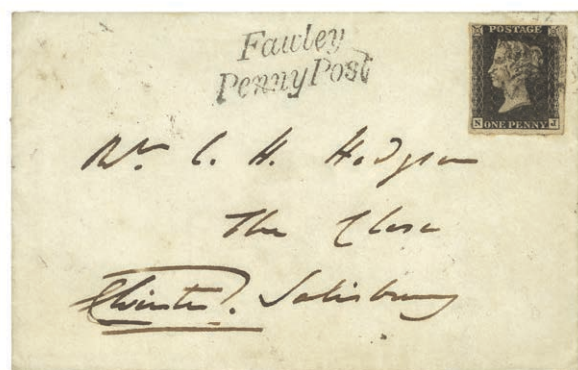 Fawley
Penny Post
POSTAGE
ONE PENNY
Mr. C. H. Hodgson
The Close
Salisbury